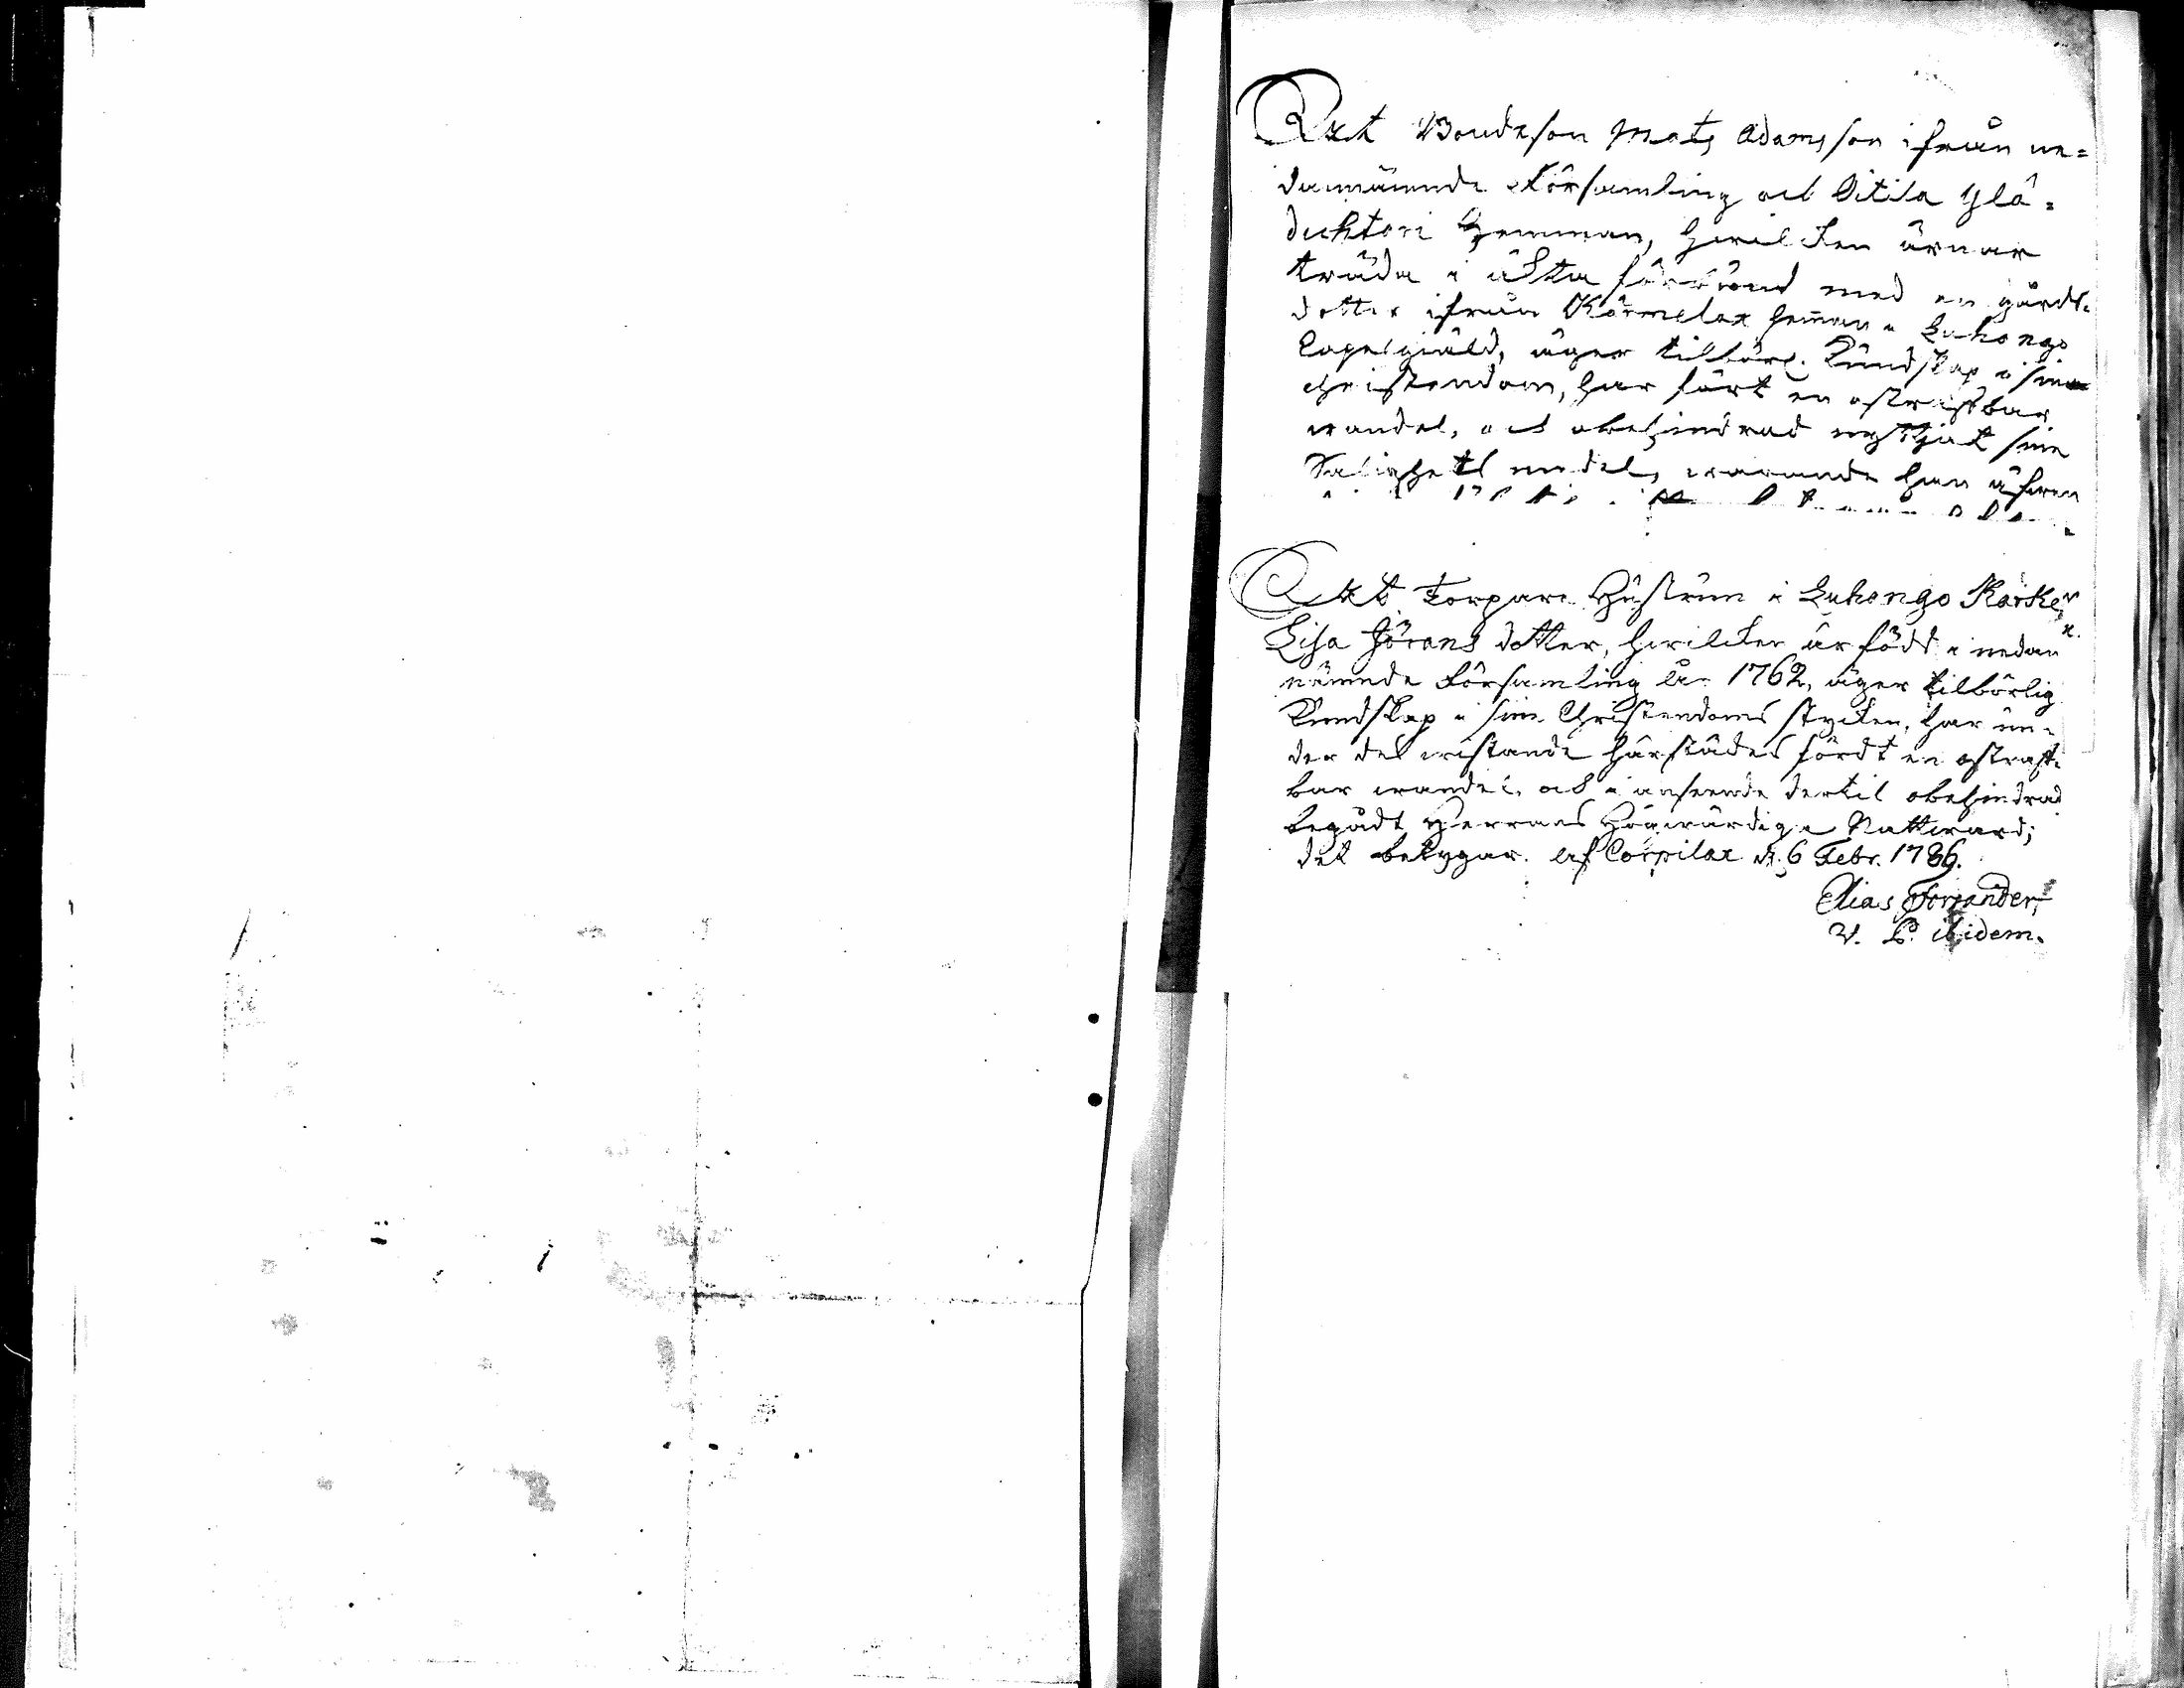 Att Bonde son Mats Adamsson ifrån ne=
dannämnde Församling och Vitila Ylä=
duktori Hemman, hwilcken ärnar
träda i äkta förbund med en gårds
dotter ifrån Kärmelax heman i Luhango
Capelgiäld, äger tilbörl. Kundskap i sin
christendom, har fört en ostraffbar
wandel, och obehindrad nyttjat sine
Salighets medel, warande han äfwen
Att Torpare Hustrun i Luhango Kärke,
Lisa Jörans dotter, hwilcken är född i nedan
nämnde Församling år 1762, äger tilbörlig
Kundskap i sine Christendoms stycken, har un=
der des wistande härstädes fördt en ostraff=
bar wandel, och i anseende dertil obehindrad
begådt Herrans Högwärdige Nattward;
det betygar. af Corpilax d. 6 Febr. 1786.
Elias Forsander,
V. P. ibidem.